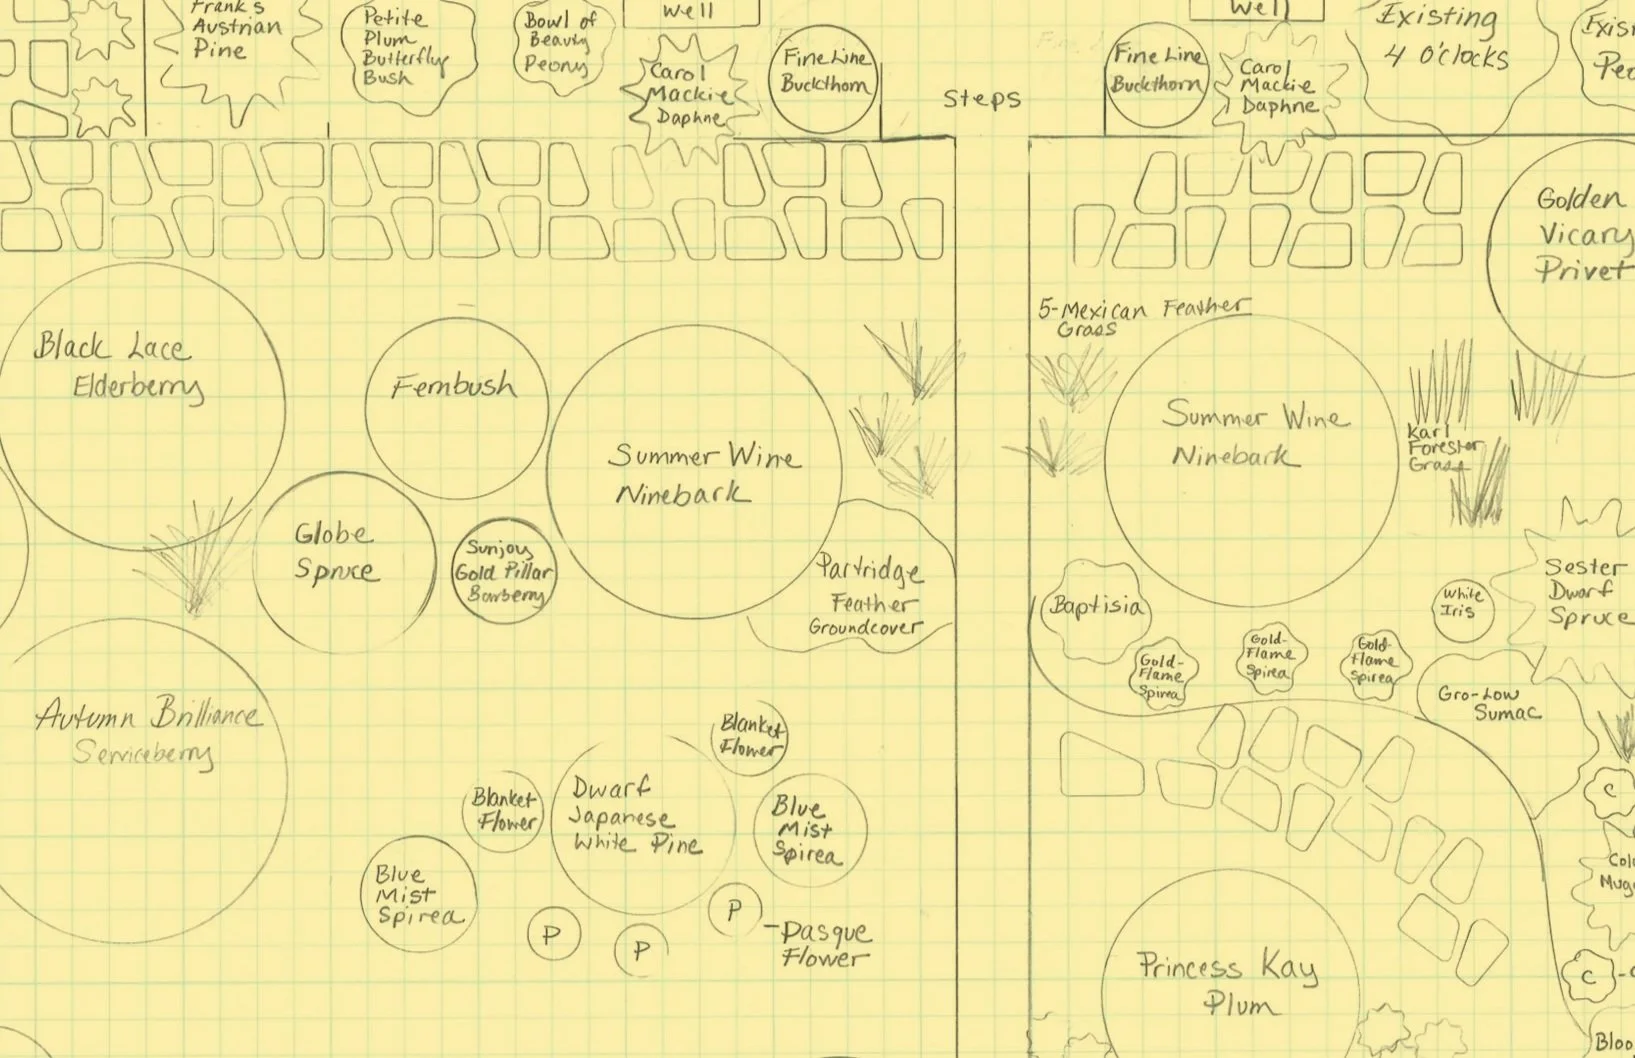 Frank's
Austrian
Pine
Petite
Plum
Butterfly
Bush
Bowl of
Beauty
Peony
Well
Carol
Mackie
Daphne
Fine Line
Buckthorn
Steps
Fine Line
Buckthorn
Well
Carol
Mackie
Daphne
Existing
4 O'clocks
Golden
Vicary
Privet
5-Mexican Feather
Grass
Black Lace
Elderberry
Fernbush
Summer Wine
Ninebark
Summer Wine
Ninebark
Karl
Forester
Grass
Globe
Spruce
Sunjoy
Gold Pillar
Barberry
Partridge
Feather
Groundcover
Baptisia
White
Iris
Sester
Dwarf
Spruce
Gold-
Flame
Spirea
Gold-
Flame
Spirea
Gold-
Flame
Spirea
Gro-Low
Sumac
Autumn Brilliance
Serviceberry
Blanket
Flower
Blanket
Flower
Dwarf
Japanese
White Pine
Blue
Mist
Spirea
Blue
Mist
Spirea
P
P
P
-Pasque
Flower
C
C
Princess Kay
Plum